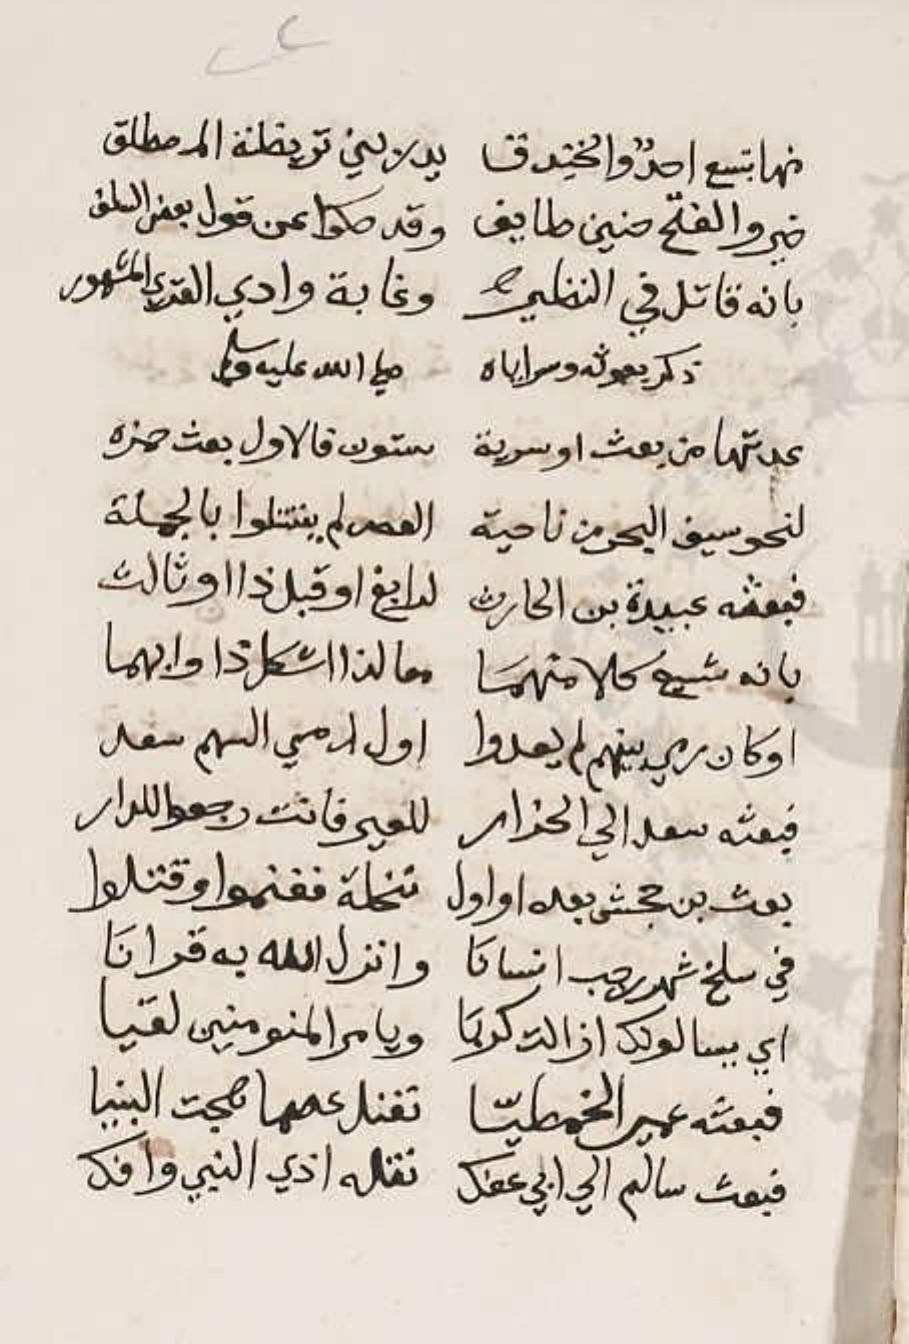 منها بتسع احدٌ والخندقا بدر بني قريظة المصطلق
خيبر والفتح حنين طايف وقد حكوا عن قول بعض السلف
بانه قاتل في النظير وغابة وادي القرى المشهور
ذكر بعوثه وسراياه صلى الله عليه وسلم
عدتها من بعث او سرية ستون فالاول بعث حمزه
لنحو سيف البحر من ناحية العيص لم يقتتلوا بالجملة
فبعثه عبيدة بن الحارث لرابغ او قبل ذا او ثالث
بانه شيع كلا منهما معا لذا اشكل ذا وابهما
او كان رمي بينهم لم يعدوا اول ارمي السهم سعد
فبعثه سعد الى الخرار للعير فاتت رجعوا للدار
بعث بن جحش بعده او اول نخلة فغنموا وقتلوا
في سلخ شهر رجب انسانا وانزل الله به قرانا
اي يسالونك ازالت كربا ويا مر المنومنين لقبا
فبعثه عمير الخطميا تقتل عصما هجت النبيا
فبعث سالم الى ابي عفك نقله اذي النبي وافك